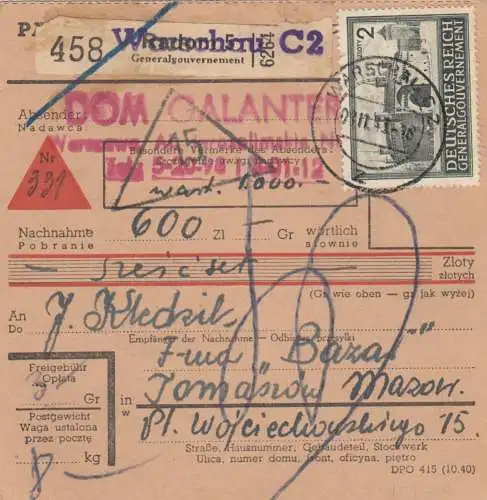 458 Radom 5 Warschau C2
Generalgouvernement
DOM GALANTER
Absender
Nadawca
Besondere Vermerke des Absenders
Szczególne uwagi nadawcy
15
wart. 1.000.—
Nr
331
Nachnahme 600 Zl — Gr wörtlich
Pobranie słownie
— Sześćset — Zloty
złotych
(Gr wie oben — gr jak wyżej)
An
Do
J. Kledzik
Empfänger der Nachnahme — Odbiorca przesyłki
Fma "Bazar"
Freigebühr
Opłata
Gr
in
w
Tomaszów Mazow.
Postgewicht
Waga ustalona
przez pocztę
8 — kg
Pl. Wojciechowskiego 15.
Straße, Hausnummer, Gebäudeteil, Stockwerk
Ulica, numer domu, front, oficyna, piętro
DPO 415 (10.40)
2
DEUTSCHES REICH
GENERALGOUVERNEMENT
WARSCHAU